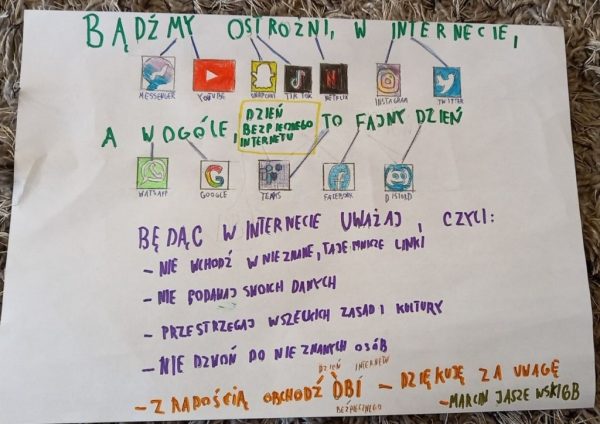 BĄDŹMY OSTROŻNI, W INTERNECIE,
MESSENGER YOUTUBE SNAPCHAT TIK TOK NETFLIX INSTAGRAM TWITTER
A WOGÓLE, DZIEŃ BEZPIECZNEGO INTERNETU TO FAJNY DZIEŃ
WATSAPP GOOGLE TEAMS FACEBOOK DISCORD
BĘDĄC W INTERNECIE UWAŻAJ, CZYLI:
- NIE WCHODŹ W NIEZNANE, TAJEMNICZE LINKI
- NIE PODAWAJ SWOICH DANYCH
- PRZESTRZEGAJ WSZECKICH ZASAD I KULTURY
- NIE DZWOŃ DO NIEZNANYCH OSÓB
DZIEŃ INTERNETU
- Z RADOŚCIĄ OBCHODŹ DBI - DZIĘKUJĘ ZA UWAGĘ
BEZPIECZNEGO
- MARCIN JASZEWSKI 6B